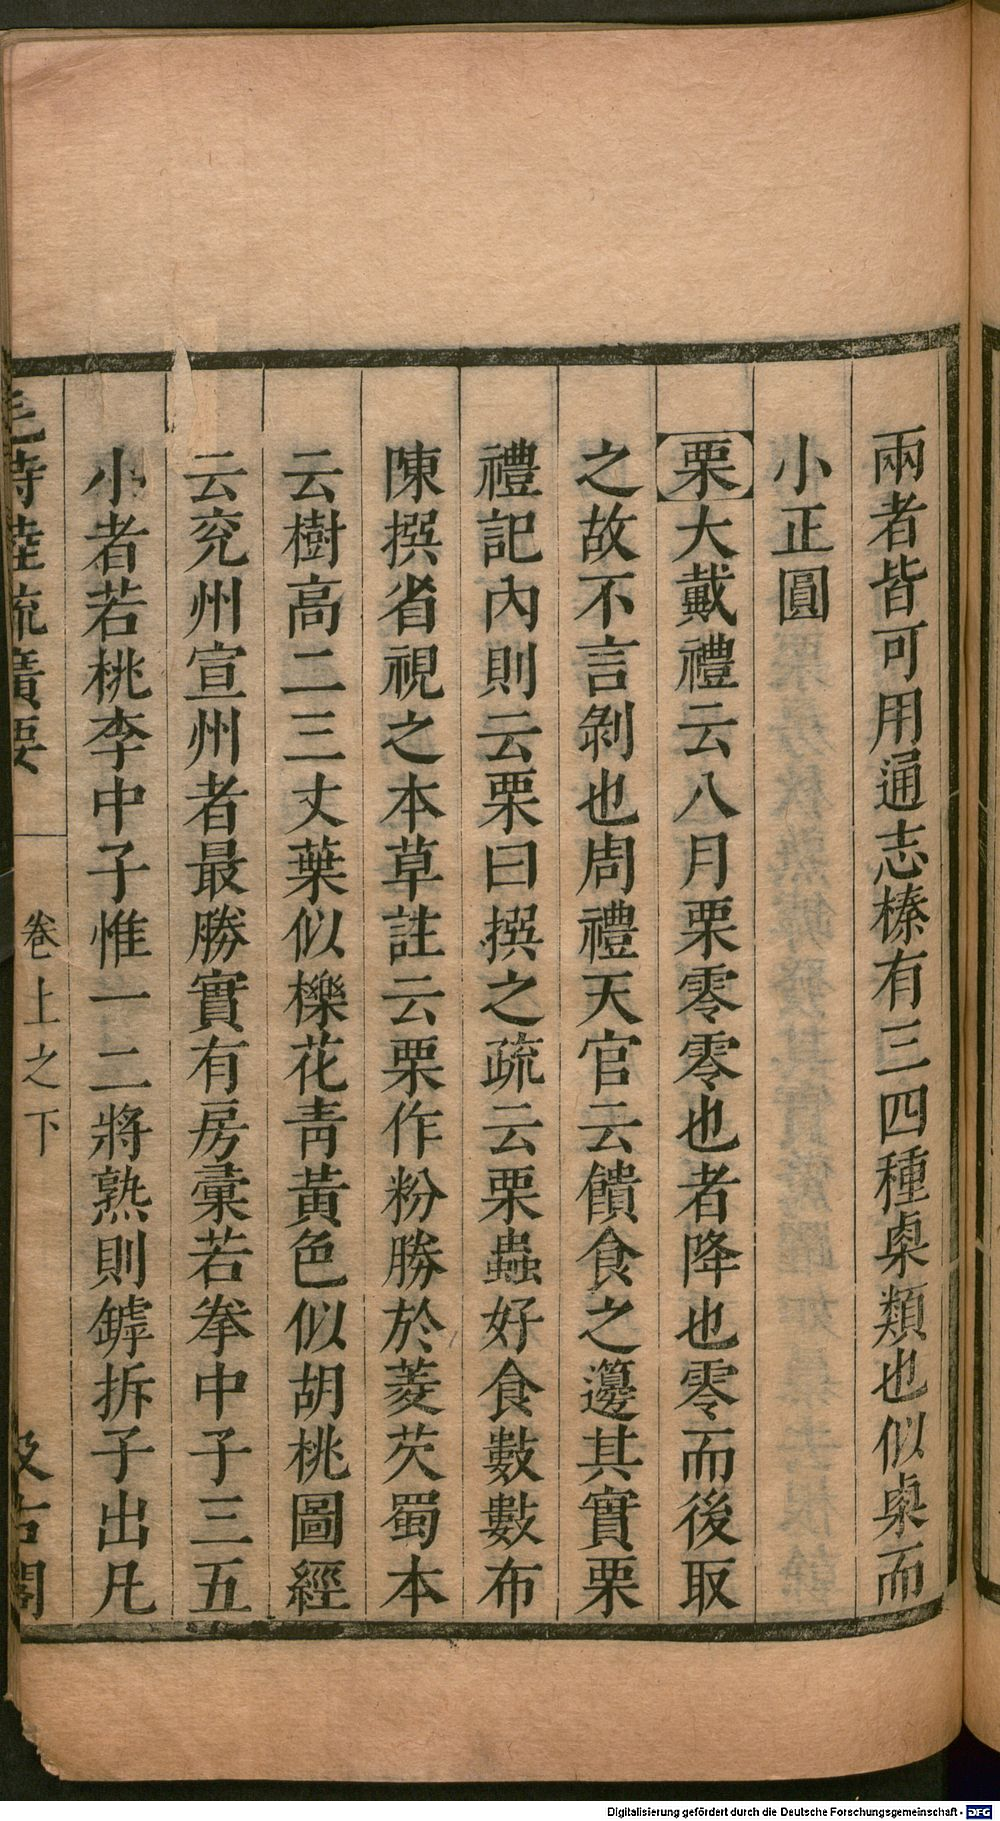 兩者皆可用通志榛有三四種㮚類也似㮚而
小正圓
栗大戴禮云八月栗零零也者降也零而後取
之故不言剝也周禮天官云饋食之籩其實栗
禮記內則云栗曰撰之疏云栗蟲好食數數布
陳撰省視之本草註云栗作粉勝於菱芡蜀本
云樹高二三丈葉似櫟花靑黃色似胡桃圖經
云兖州宣州者最勝實有房彙若拳中子三五
小者若桃李中子惟一二將熟則罅拆子出凡
毛詩陸疏廣要 卷上之下 汲古閣
Digitalisierung gefördert durch die Deutsche Forschungsgemeinschaft - DFG